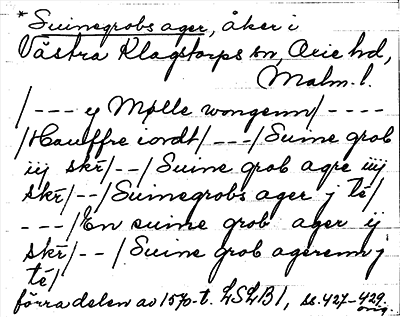 *Suinegrobs ager, åker i
Västra Klagstorps sn, Oxie hd,
Malm. l.
/--- y Mølle wongenn/----
/Hauffre iordt/---/Suine grob
iij skr̄/--/Suine grob agre iiij
skr̄/--/Suinegrobs ager j tē/
---/En suine grob ager ij
skr̄/--/Suine grob agerenn j
tē/
förra delen av 1570-t. LSLB1, s. 427-429
orig.